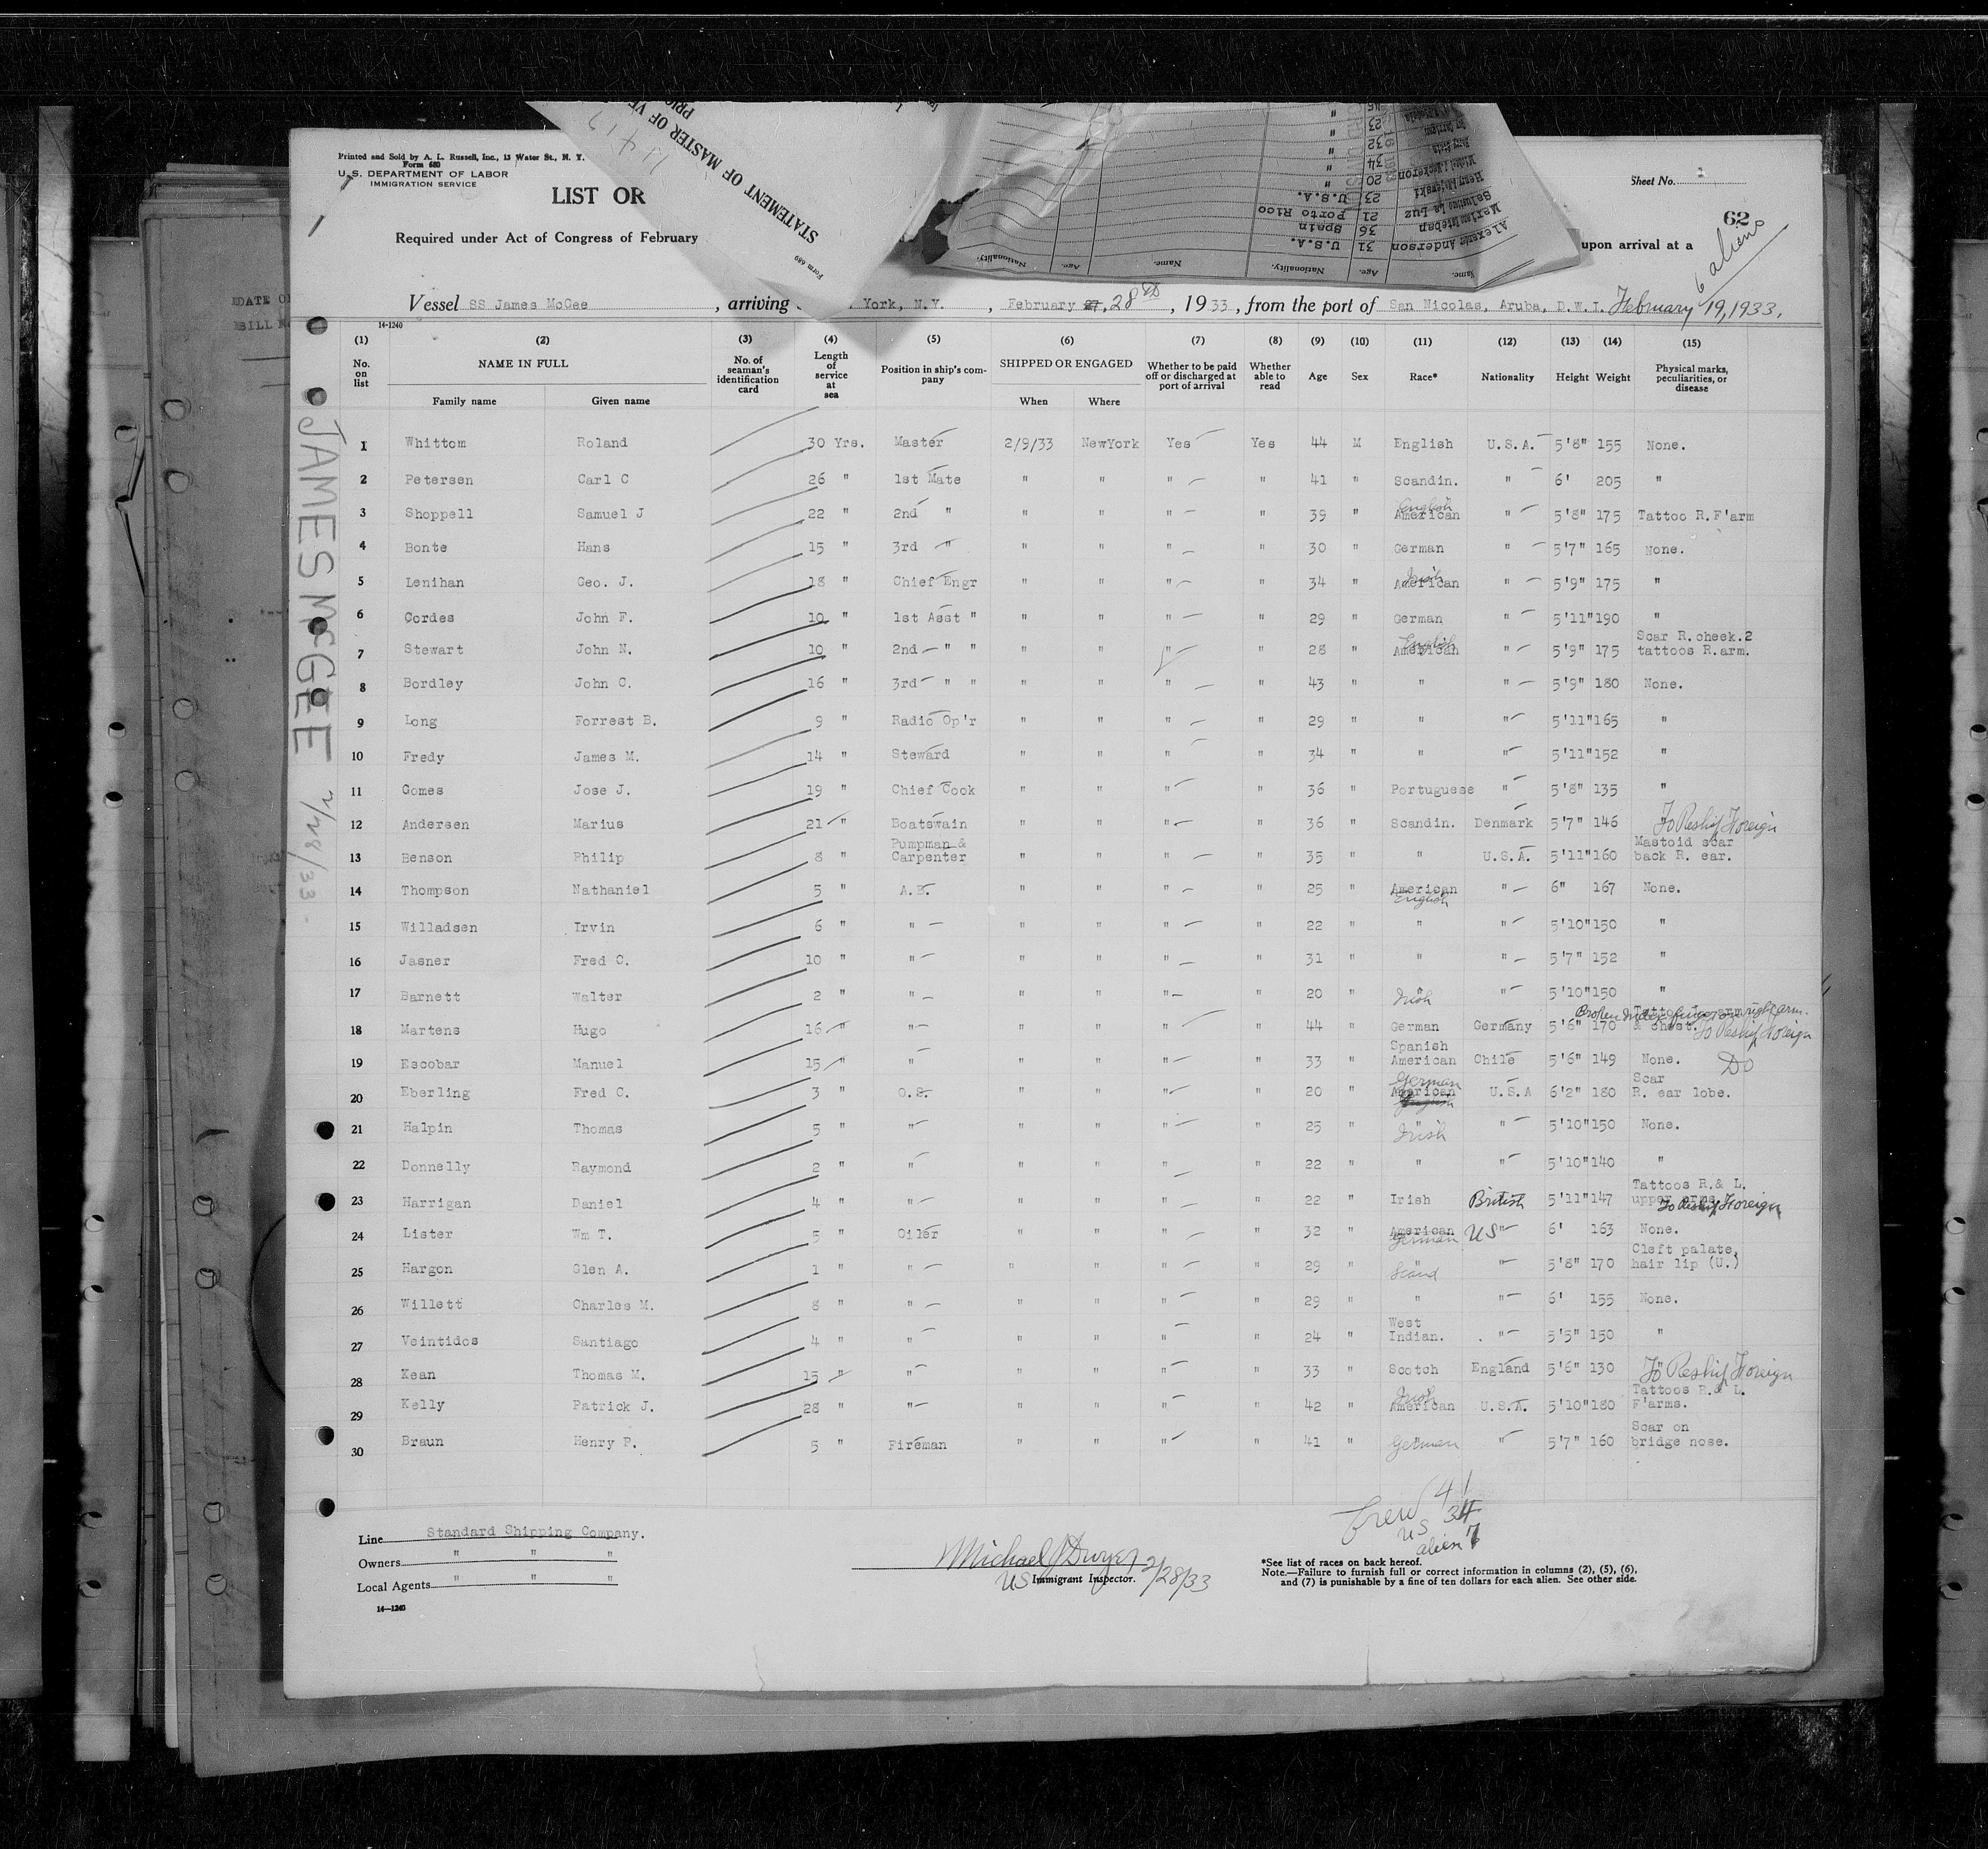 Printed and Sold by A. L. Russell, Inc., 13 Water St., N. Y.
Form 680
U. S. DEPARTMENT OF LABOR
IMMIGRATION SERVICE
LIST OR
Required under Act of Congress of February
STATEMENT OF MASTER OF VE
PRIO
Form 689
Name. Age. Nationality. Name. Age. Nationality.
Alexander Anderson 31 U.S.A.
36 Spain
La Luz 21 Porto Rico
Henry 23 U.S.A.
20 "
34 "
32 "
23 "
Sheet No.
62
6 aliens
upon arrival at a
Vessel SS James McGee, arriving York, N.Y., February 27, 28th, 1933, from the port of San Nicolas, Aruba, D.W.I. February 19, 1933.
14-1240
(1) (2) (3) (4) (5) (6) (7) (8) (9) (10) (11) (12) (13) (14) (15)
No. on list NAME IN FULL Family name Given name No. of seaman's identification card Length of service at sea Position in ship's company SHIPPED OR ENGAGED When Where Whether to be paid off or discharged at port of arrival Whether able to read Age Sex Race* Nationality Height Weight Physical marks, peculiarities, or disease
JAMES McGEE 2/28/33.
1 Whittom Roland 30 Yrs. Master 2/9/33 NewYork Yes Yes 44 M English U.S.A. 5'8" 155 None.
2 Petersen Carl C 26 " 1st Mate " " " " 41 " Scandin. " 6' 205 "
3 Shoppell Samuel J 22 " 2nd " " " " " 39 " American English " 5'8" 175 Tattoo R.F'arm
4 Bonte Hans 15 " 3rd " " " " " 30 " German " 5'7" 165 None.
5 Lenihan Geo. J. 18 " Chief Engr " " " " 34 " American Irish " 5'9" 175 "
6 Cordes John F. 10 " 1st Asst " " " " " 29 " German " 5'11" 190 "
7 Stewart John N. 10 " 2nd " " " " " " 28 " American English " 5'9" 175 Scar R.cheek.2 tattoos R.arm.
8 Bordley John C. 16 " 3rd " " " " " " 43 " " " 5'9" 180 None.
9 Long Forrest B. 9 " Radio Op'r " " " " 29 " " " 5'11" 165 "
10 Fredy James M. 14 " Steward " " " " 34 " " " 5'11" 152 "
11 Gomes Jose J. 19 " Chief Cook " " " " 36 " Portuguese " 5'8" 135 "
12 Andersen Marius 21 " Boatswain " " " " 36 " Scandin. Denmark 5'7" 146 To Reship Foreign
13 Benson Philip 8 " Pumpman & Carpenter " " " " 35 " " U.S.A. 5'11" 160 Mastoid scar back R. ear.
14 Thompson Nathaniel 5 " A.B. " " " " 25 " American English " 6" 167 None.
15 Willadsen Irvin 6 " " " " " " 22 " " " 5'10" 150 "
16 Jasner Fred C. 10 " " " " " " 31 " " " 5'7" 152 "
17 Barnett Walter 2 " " " " " " 20 " Irish " 5'10" 150 "
18 Martens Hugo 16 " " " " " " 44 " German Germany 5'6" 170 Broken Index finger & chest. right arm. To Reship Foreign
19 Escobar Manuel 15 " " " " " " 33 " Spanish American Chile 5'6" 149 None. Do
20 Eberling Fred C. 3 " O.S. " " " " 20 " American German English U.S.A 6'2" 180 Scar R. ear lobe.
21 Halpin Thomas 5 " " " " " " 25 " Irish " 5'10" 150 None.
22 Donnelly Raymond 2 " " " " " " 22 " " " 5'10" 140 "
23 Harrigan Daniel 4 " " " " " " 22 " Irish British 5'11" 147 Tattoos R.& L. upper arms To Reship Foreign
24 Lister Wm T. 5 " Oiler " " " " 32 " American German US " 6' 163 None.
25 Hargon Glen A. 1 " " " " " " 29 " Scand " 5'8" 170 Cleft palate, hair lip (U.)
26 Willett Charles M. 8 " " " " " " 29 " " " 6' 155 None.
27 Veintidos Santiago 4 " " " " " " 24 " West Indian. " 5'5" 150 "
28 Kean Thomas M. 15 " " " " " " 33 " Scotch England 5'6" 130 " To Reship Foreign
29 Kelly Patrick J. 28 " " " " " " 42 " American Irish U.S.A. 5'10" 180 Tattoos R.& L. F'arms.
30 Braun Henry P. 5 " Fireman " " " " 41 " German " 5'7" 160 Scar on bridge nose.
Crew 41
US 34
alien 7
Line Standard Shipping Company.
Owners " " "
Local Agents " " "
14-1240
Michael J Dwyer 2/28/33
US Immigrant Inspector.
*See list of races on back hereof.
Note.—Failure to furnish full or correct information in columns (2), (5), (6),
and (7) is punishable by a fine of ten dollars for each alien. See other side.